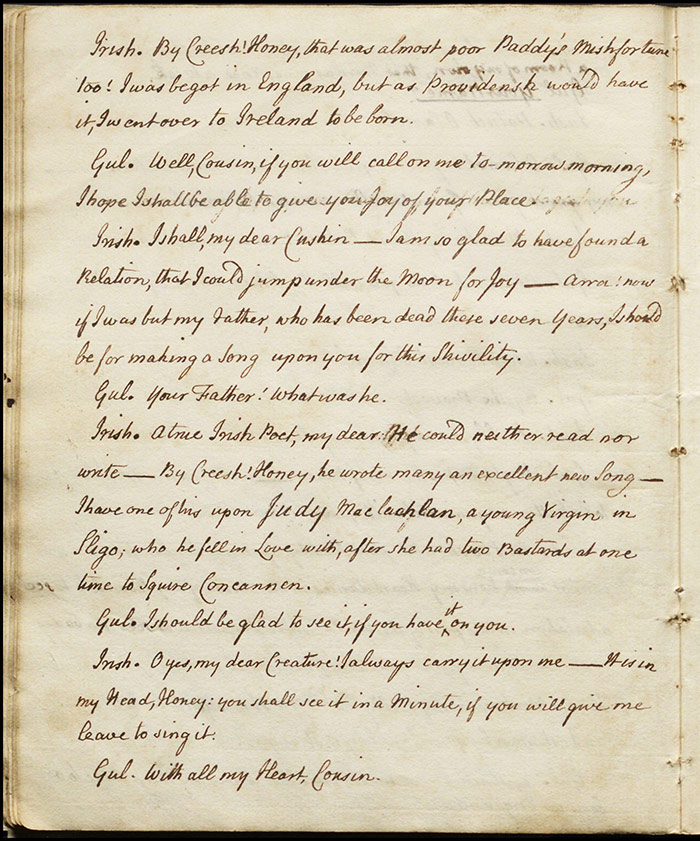 Irish. By Creesh! Honey, that was almost poor Paddy's Mishfortune
too! I was begot in England, but as Providensh would have
it, I went over to Ireland to be born.
Gul. Well, Cousin, if you will call on me to-morrow morning,
I hope I shall be able to give you Joy of your Place.
Irish. I shall, my dear Cushin — I am so glad to have found a
Relation, that I could jump under the Moon for Joy — Arra! now
if I was but my Father, who has been dead these seven Years, I should
be for making a Song upon you for this Shivility.
Gul. Your Father! What was he.
Irish. A true Irish Poet, my dear: He could neither read nor
write — By Creesh! Honey, he wrote many an excellent new Song —
I have one of his upon Judy Maclachlan, a young Virgin in
Sligo; who he fell in Love with, after she had two Bastards at one
time to Squire Concannen.
Gul. I should be glad to see it, if you have it on you.
Irish. O yes, my dear Creature! I always carry it upon me — It is in
my Head, Honey: you shall see it in a Minute, if you will give me
leave to sing it.
Gul. With all my Heart, Cousin.